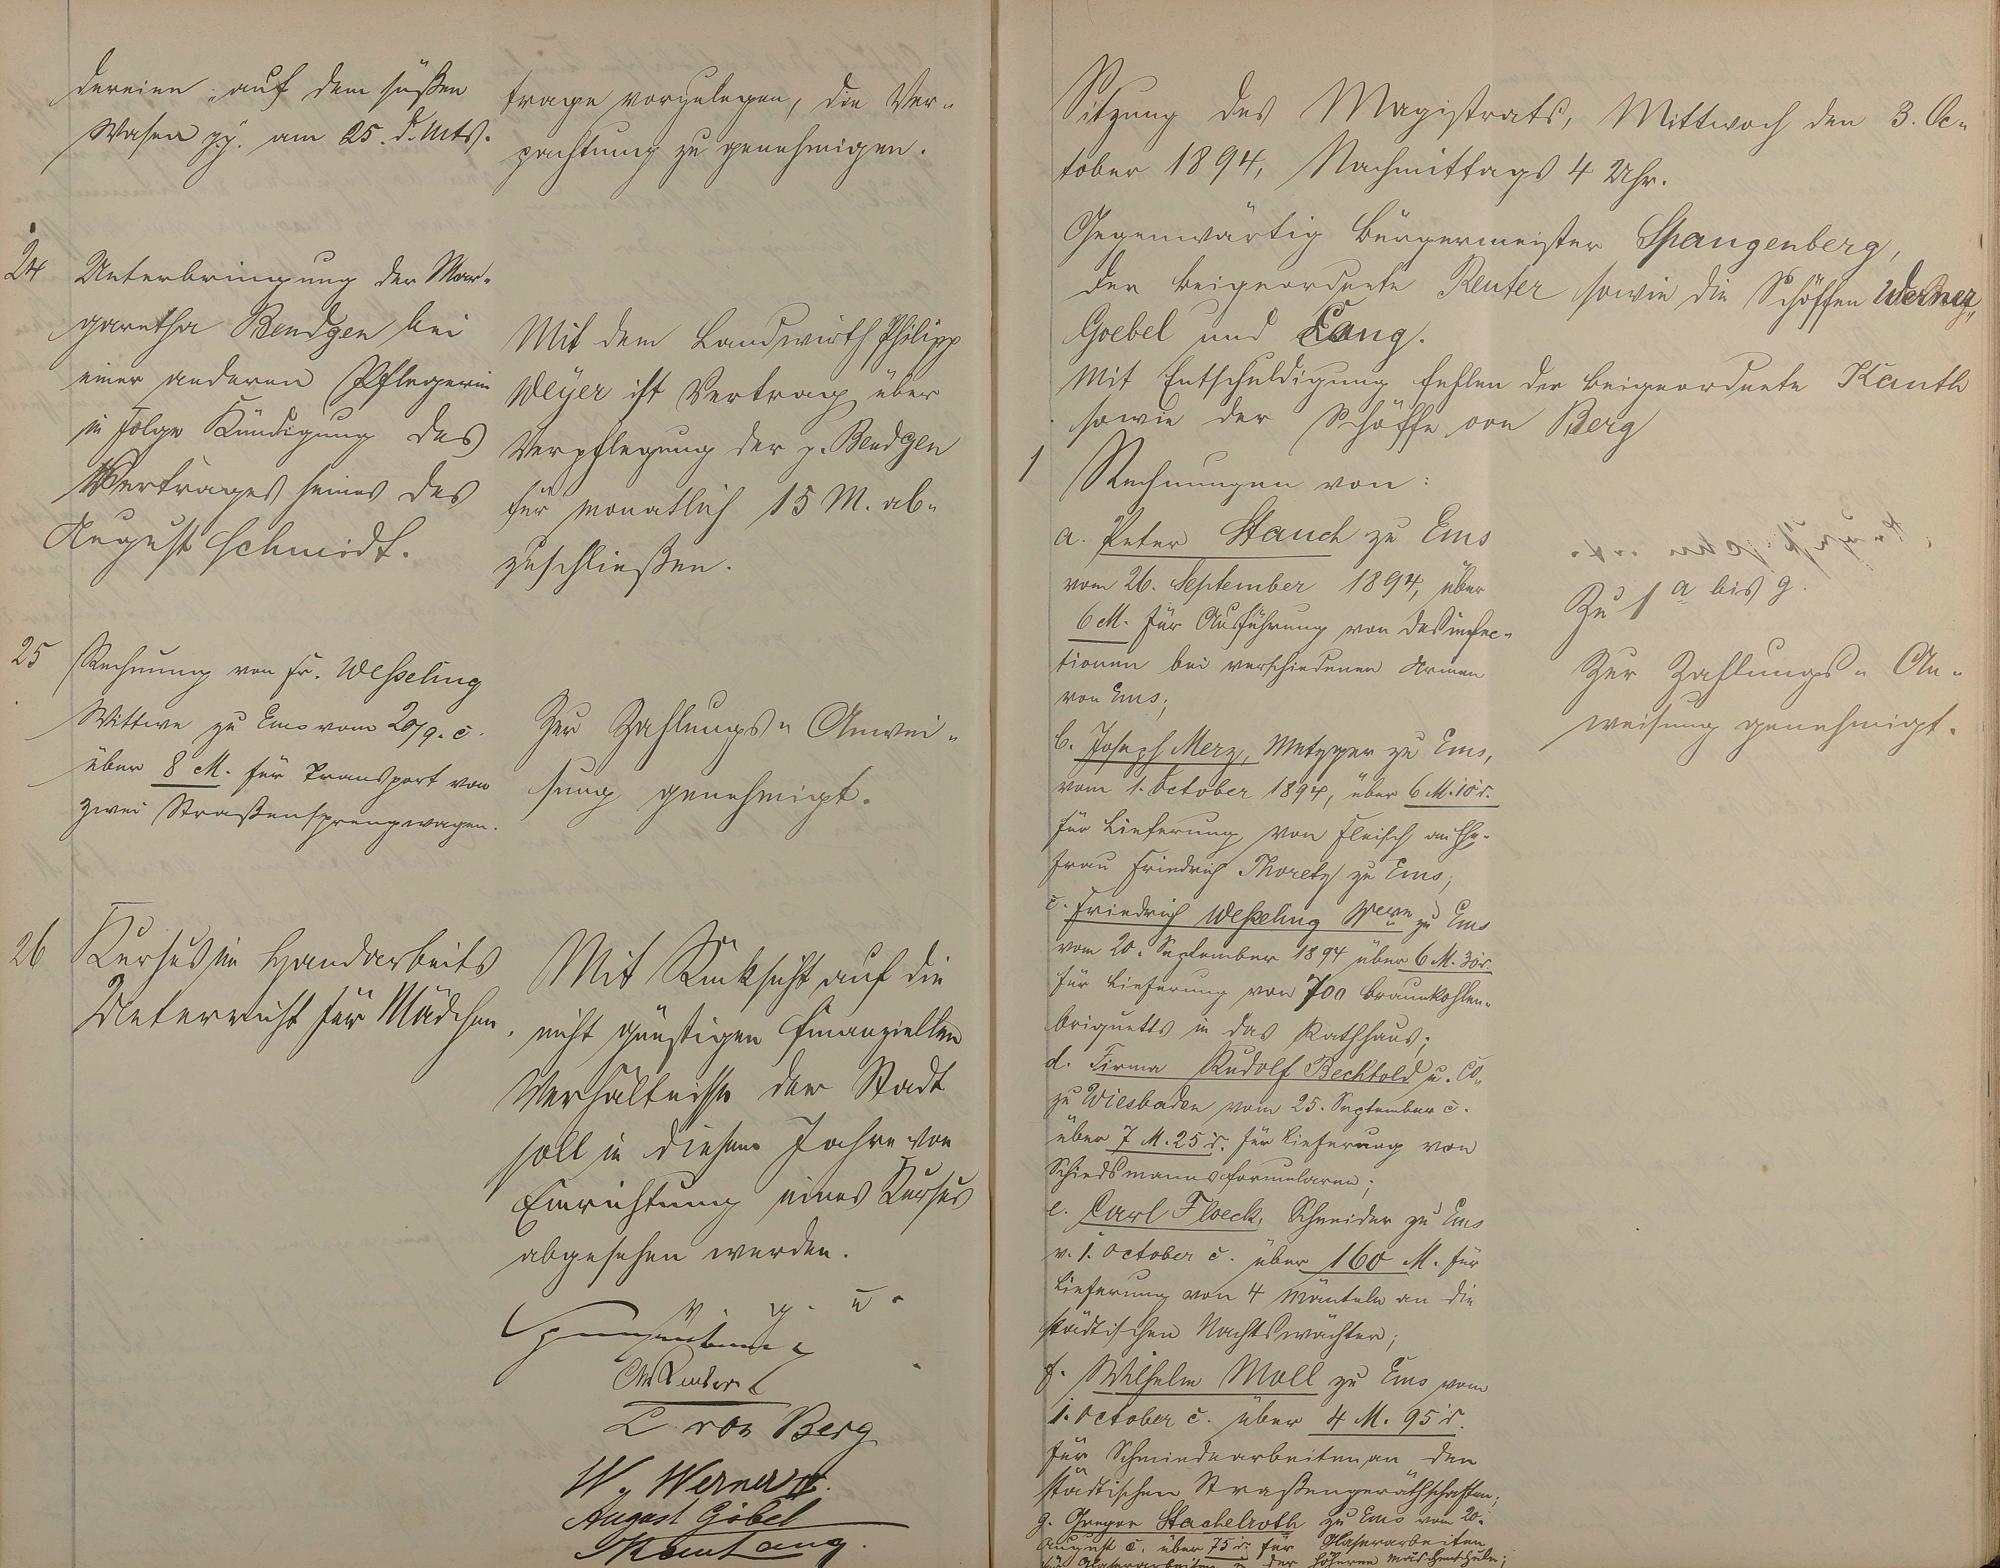 dereien auf dem süßen
Wasen pp. am 25. d. Mts.
trage vorzulegen, die Ver-
pachtung zu genehmigen.
24
Unterbringung der Mar-
garetha Bendgen bei
einer anderen Pflegerin
in Folge Kündigung des
Vertrages seines des
August Schmidt.
Mit dem Landwirth Philipp
Weyer ist Vertrag über
Verpflegung der p. Bendgen
für monatlich 15 M. ab-
zuschließen.
25
Rechnung von Fr. Weßeling
Wittwe zu Ems vom 20/9. c.
über 8 M. für Transport von
zwei Straßensprengwagen.
Zur Zahlungs-Anwei-
sung genehmigt.
26
Kursus im Handarbeits
Unterricht für Mädchen.
Mit Rücksicht auf die
nicht günstigen finanziellen
Verhältnisse der Stadt
soll in diesem Jahre von
Einrichtung eines Kursus
abgesehen werden.
v. g. u.
Spangenberg
C. von Berg
W. Werner
August Göbel
Lang
Sitzung des Magistrats, Mittwoch den 3. Oc-
tober 1894, Nachmittags 4 Uhr.
Gegenwärtig Bürgermeister Spangenberg,
der Beigeordnete Reuter sowie die Schöffen Werner,
Goebel und Lang.
Mit Entschuldigung fehlen der Beigeordnete Kauth
sowie der Schöffe von Berg
1
Rechnungen von:
a. Peter Stauch zu Ems
vom 26. September 1894, über
6 M. für Ausführung von Desinfec-
tionen bei verschiedenen Armen
von Ems;
b. Joseph Merz, Metzger zu Ems,
vom 1. October 1894, über 6 M. 10 d.
für Lieferung von Fleisch an Ehe-
frau Friedrich Thoretz zu Ems;
c. Friedrich Weßeling Wwe zu Ems
vom 20. September 1894 über 6 M. 30 d.
für Lieferung von 700 Braunkohlen-
briquetts in das Rathhaus;
d. Firma Rudolf Bechtold u. Co.
zu Wiesbaden vom 25. September c.
über 7 M. 25 d. für Lieferung von
Schiedsmannsformularen;
e. Carl Floeck, Schneider zu Ems
v. 1. October c. über 160 M. für
Lieferung von 4 Mänteln an die
städtischen Nachtswächter;
f. Wilhelm Moll zu Ems vom
1. October c. über 4 M. 95 d.
für Schmiedearbeiten an den
städtischen Straßengeräthschaften;
g. Gregor Stachelroth zu Ems vom 20.
August c. über 75 d. für Glaserarbeiten
der höheren Mädchenschule;
Zu 1 a bis g.
Zur Zahlungs-An-
weisung genehmigt.